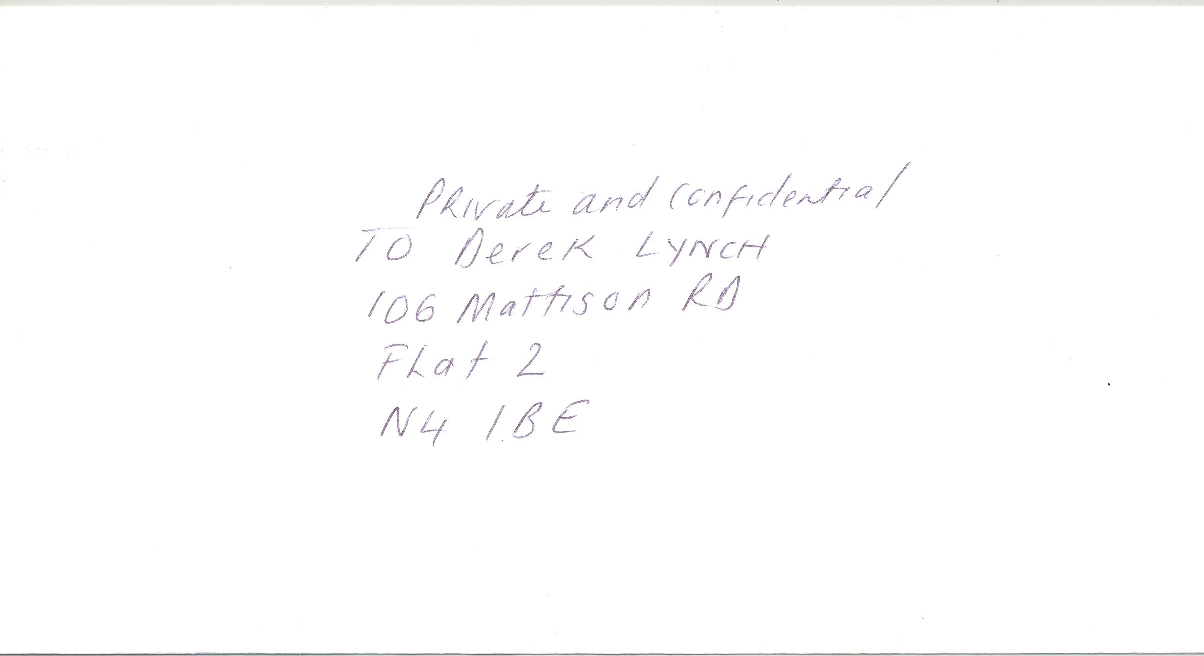 Private and confidential
TO Derek LYNCH
106 Mattison RD
FLat 2
N4 1BE